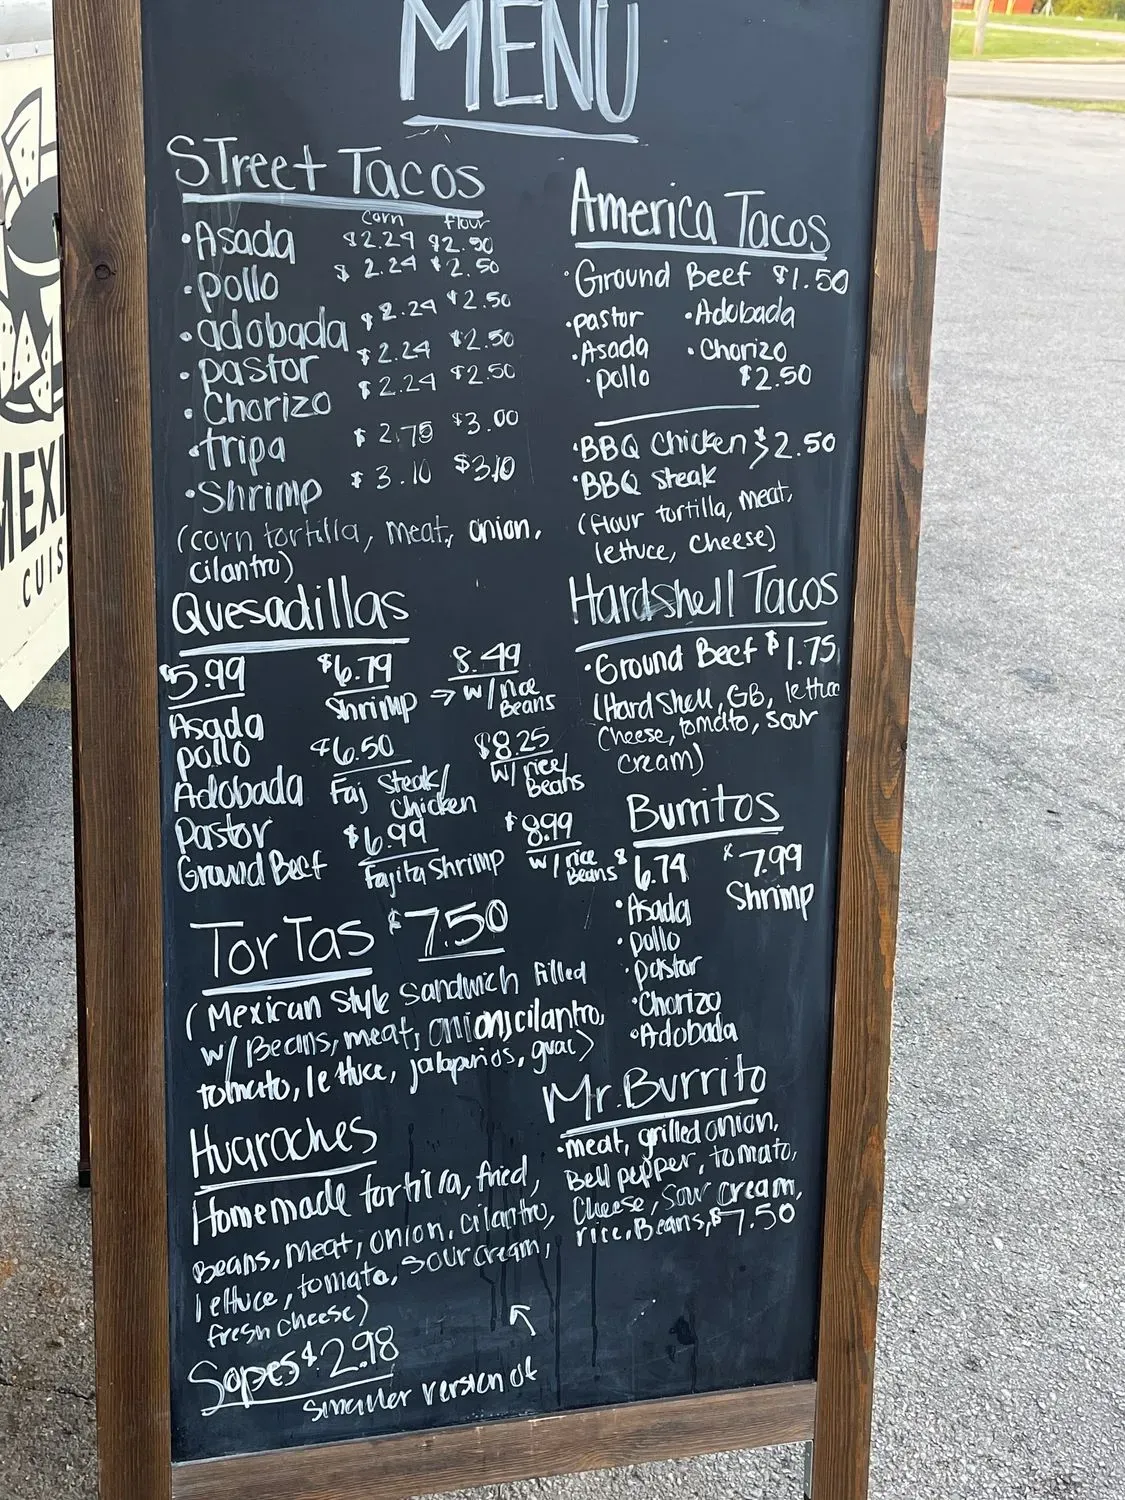 MENU
STreet Tacos
corn flour
•Asada $2.24 $2.50
•pollo $2.24 $2.50
•adobada $2.24 $2.50
•pastor $2.24 $2.50
•Chorizo $2.24 $2.50
•tripa $2.75 $3.00
•Shrimp $3.10 $3.10
(corn tortilla, meat, onion,
cilantro)
Quesadillas
$5.99
Asada
pollo
Adobada
Pastor
Ground Beef
$6.79
Shrimp →
8.49
w/rice
Beans
$6.50
Faj Steak/
Chicken
$8.25
w/rice/
Beans
$6.99
Fajita Shrimp
$8.99
w/rice
Beans
TorTas $7.50
(Mexican style sandwich filled
w/ Beans, meat, onion, cilantro,
tomato, lettuce, jalapaños, guac)
Huaraches
Homemade tortilla, fried,
Beans, meat, onion, cilantro,
lettuce, tomato, sour cream,
fresh cheese)
Sopes $2.98
smaller version of
America Tacos
•Ground Beef $1.50
•pastor •Adobada
•Asada •Chorizo
•pollo $2.50
•BBQ Chicken $2.50
•BBQ steak
(flour tortilla, meat,
lettuce, cheese)
Hardshell Tacos
•Ground Beef $1.75
(Hard Shell, GB, lettuce
Cheese, tomato, sour
cream)
Burritos
$6.74
•Asada
•pollo
•pastor
•Chorizo
•Adobada
7.99
Shrimp
Mr. Burrito
•meat, grilled onion,
Bell pepper, tomato,
Cheese, Sour cream,
rice, Beans, $7.50
MEXI
CUIS